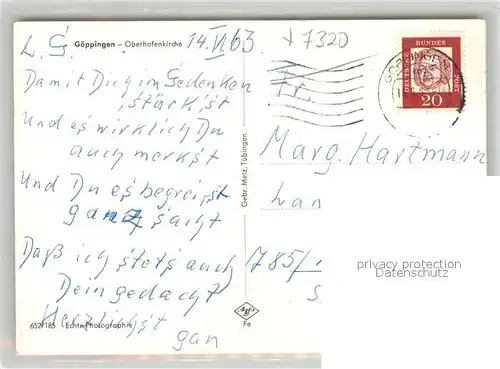 Göppingen – Oberhofenkirche
14.VI.63
+ 7320
L. G.
Damit Dich im Gedenken
stärkst
Und es wirklich Du
auch merkst
Und Du es begreifst
ganz sacht
Daß ich stets auch
Dein gedacht
Herzlichst
gan
Gebr. Metz, Tübingen
652/185 Echte Photographie
Fe
DEUTSCHE
BUNDES
POST
20
Fr.
Marg. Hartmann
Lan
785/
S
privacy protection
Datenschutz